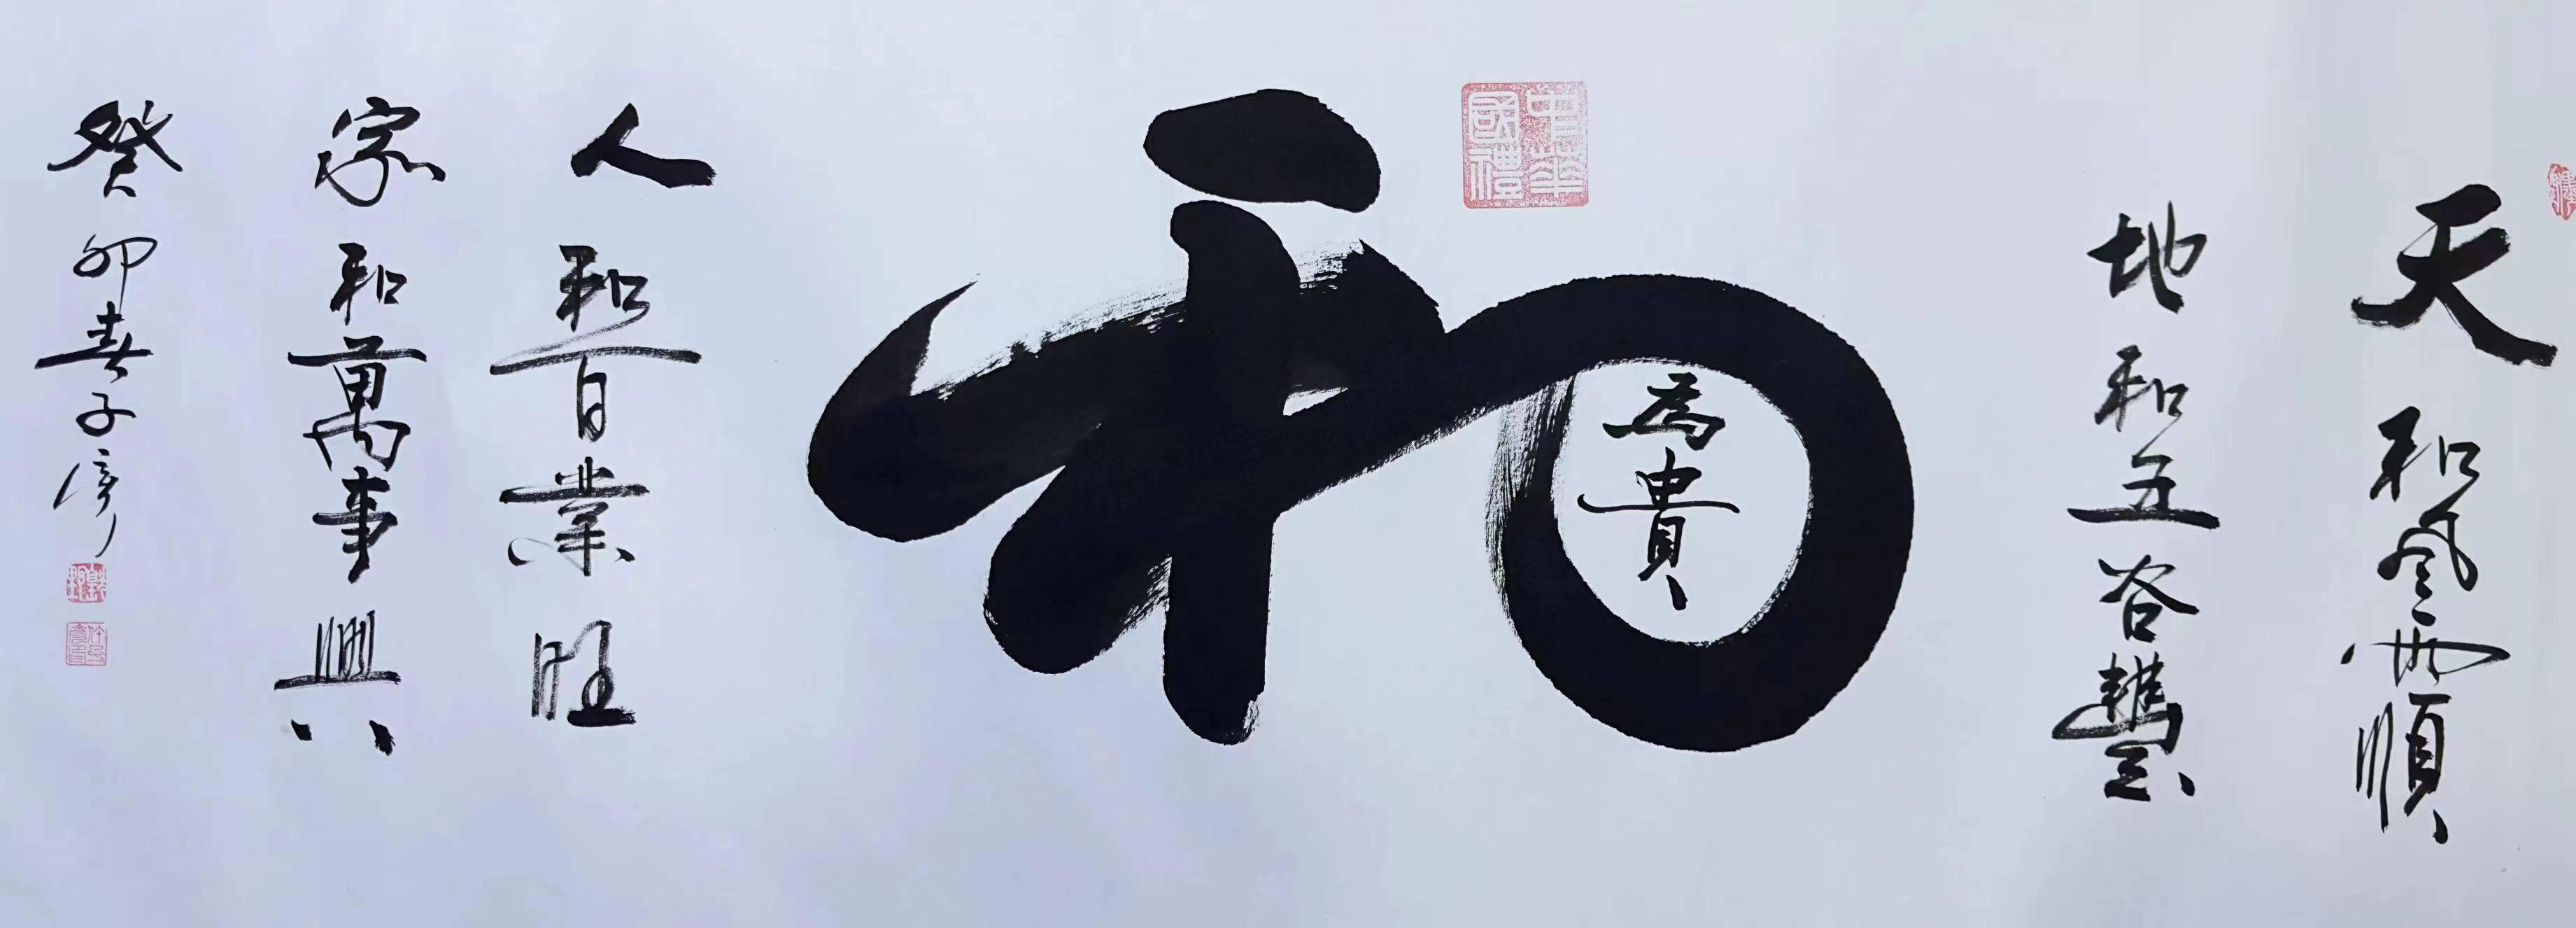 天和風雨順
地和五谷豐
中華國禮
和
為貴
人和百業旺
家和萬事興
癸卯春子序